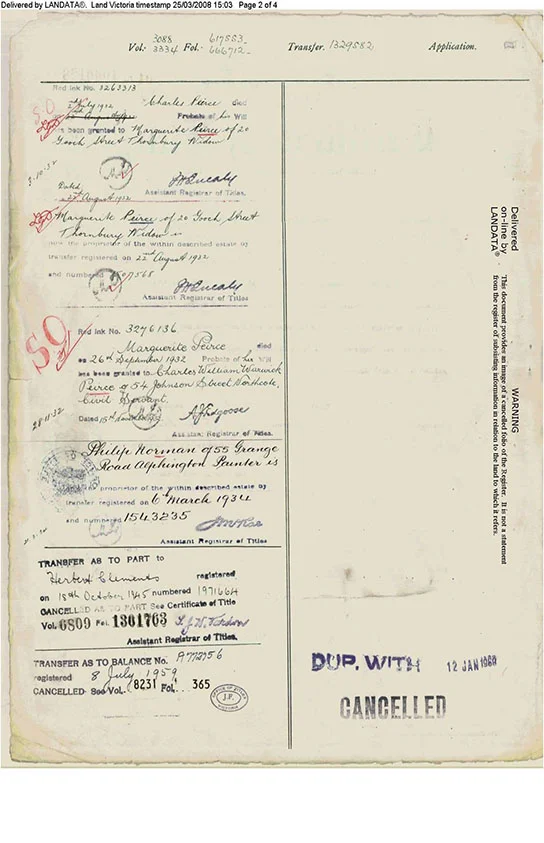 Delivered by LANDATA®. Land Victoria timestamp 25/03/2008 15:03 Page 2 of 4
3088 617553
Vol. 3334 Fol. 666712 Transfer. 1329582 Application.
Red Ink No. 3263313
July 1932 Charles Peirce died
August 1932 Probate of his Will
has been granted to Marguerite Peirce of 20
Gooch Street Thornbury Widow
3.10.32
Dated
August 1932
Assistant Registrar of Titles.
Marguerite Peirce of 20 Gooch Street
Thornbury Widow is
now the proprietor of the within described estate by
transfer registered on 22nd August 1932
and numbered 7568
Assistant Registrar of Titles
Red Ink No. 3276136
Marguerite Peirce died
on 26th September 1932 Probate of her Will
has been granted to Charles William Warwick
Peirce of 54 Johnson Street Northcote,
Civil Servant.
28.11.32
Dated 15th
Assistant Registrar of Titles.
Philip Norman of 55 Grange
Road Alphington Painter is
now proprietor of the within described estate by
transfer registered on 6th March 1934
and numbered 1543235
Assistant Registrar of Titles
TRANSFER AS TO PART to
Herbert Clements registered
on 18th October 1945 numbered 1971664
CANCELLED AS TO PART See Certificate of Title
Vol. 6809 Fol. 1361763
Assistant Registrar of Titles.
TRANSFER AS TO BALANCE No.
registered 8 July 1959
CANCELLED See Vol. 8231 Fol. 365
OFFICE OF TITLES
J.P.
VICTORIA
DUP. WITH 12 JAN 1960
CANCELLED
Delivered
on-line by
LANDATA®
WARNING
This document provides an image of a cancelled folio of the Register. It is not a statement
from the register of subsisting information in relation to the land to which it refers.